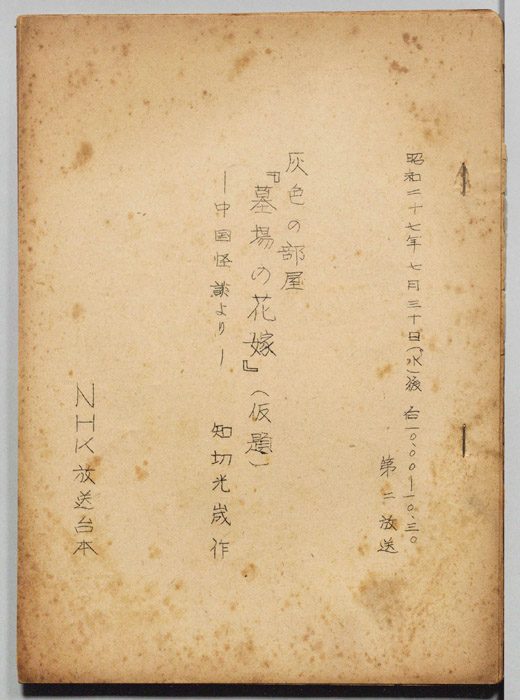 昭和二十七年七月三十日(水)後 一〇、〇〇―一〇、三〇
第二放送
灰色の部屋
『墓場の花嫁』(仮題)
―中国怪談より―
知切光歳作
NHK放送台本